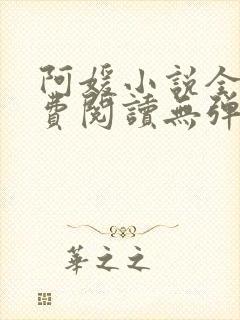 阿媛小说全
費閱讀無彈
華之之